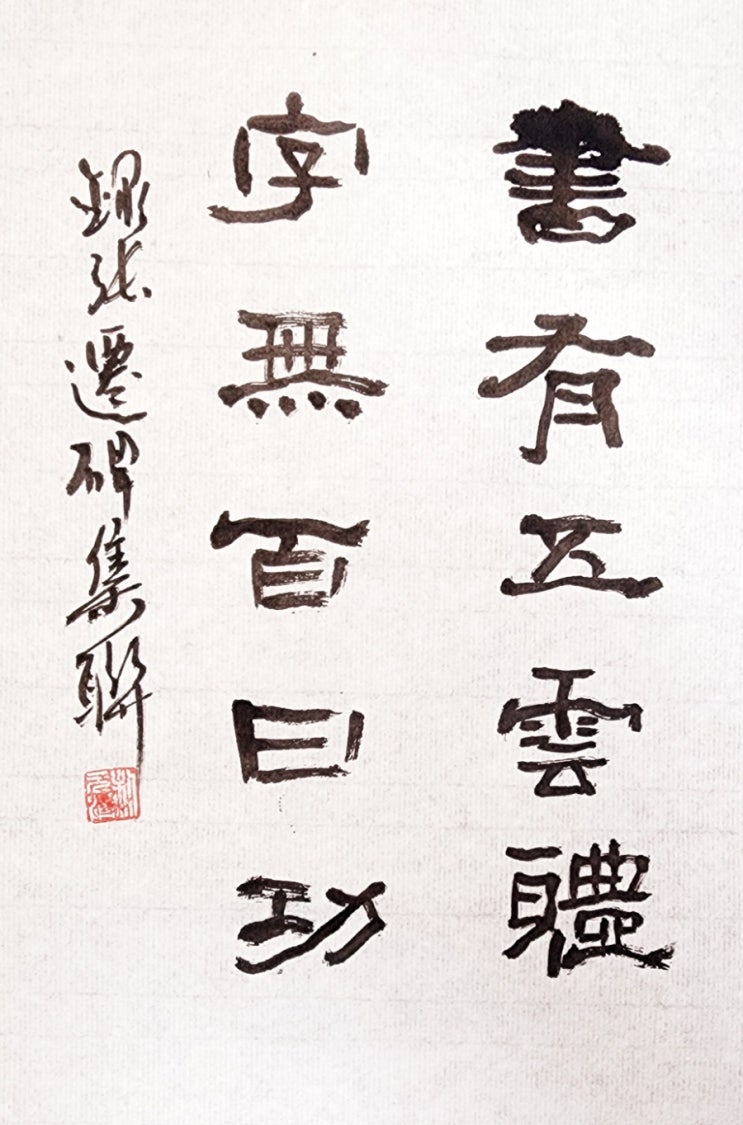 書有五雲體
字無百日功
錄张遷碑集聯